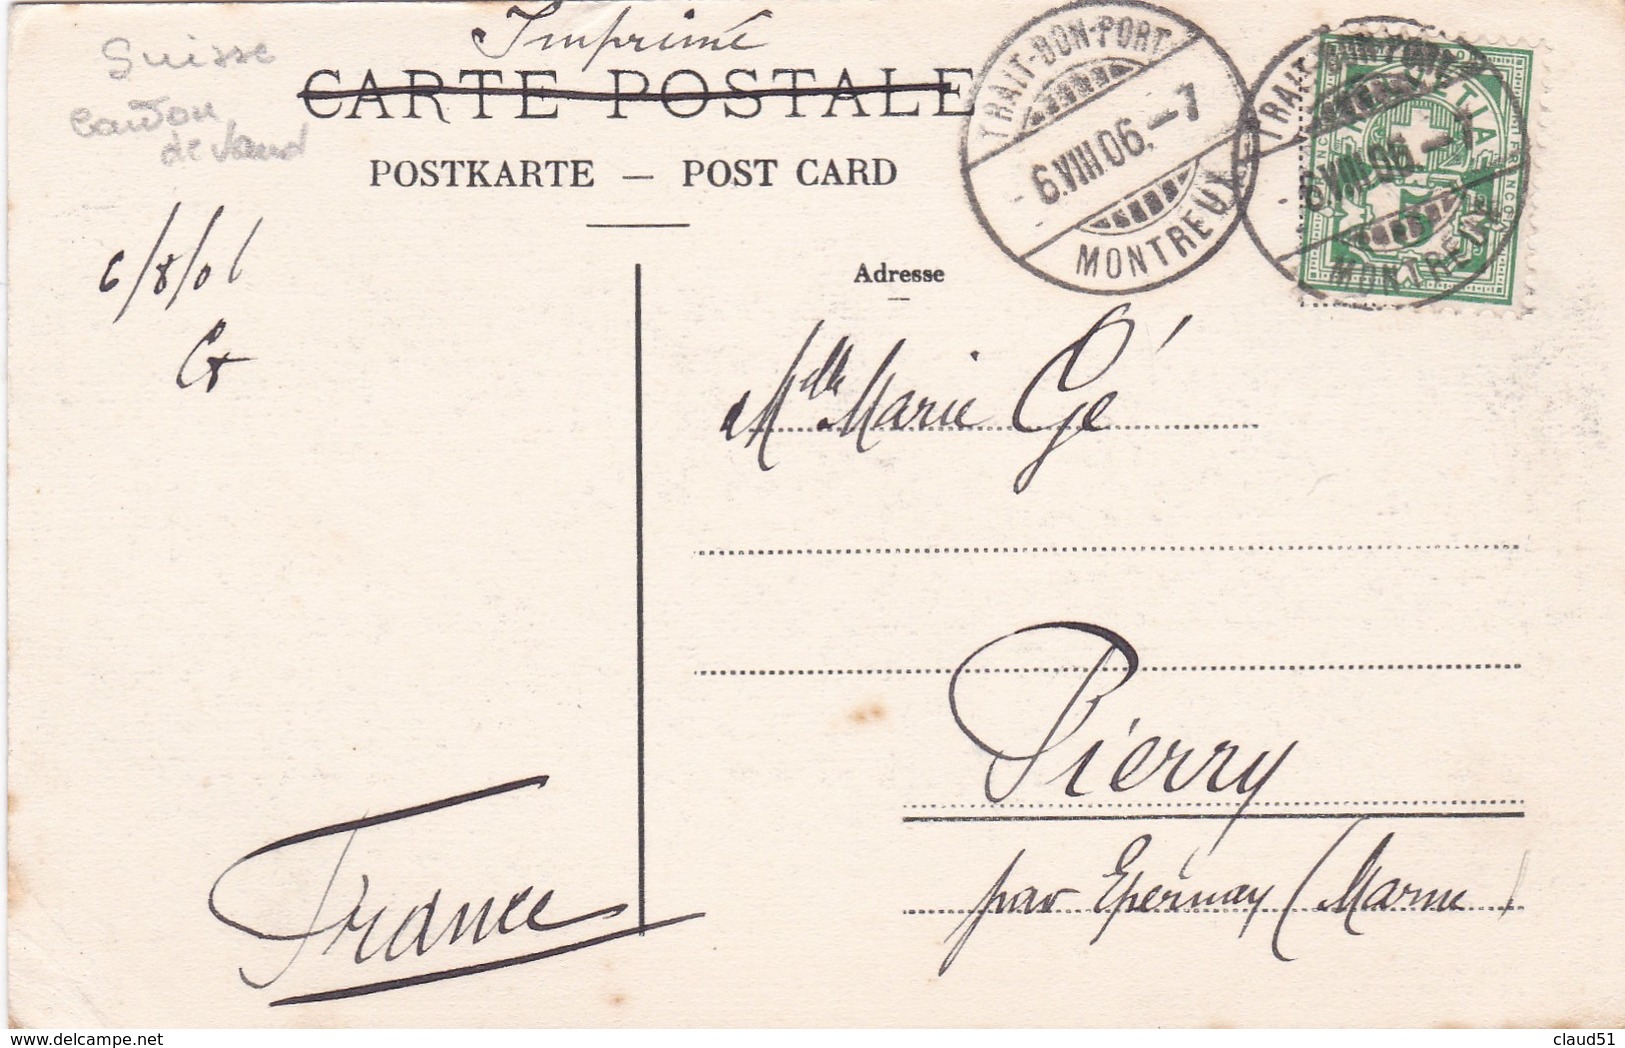 Imprimé
Suisse
Canton
de Vaud
CARTE POSTALE
POSTKARTE — POST CARD
TRAIT-BON-PORT
6.VIII.06.-7
MONTREUX
TRAIT-BON-PORT
6.VIII.06.-7
MONTREUX
FRANCO
5
6/8/06
Adresse
Mlle Marie Gé
Pierry
par Epernay (Marne)
France
delcampe.net
claud51